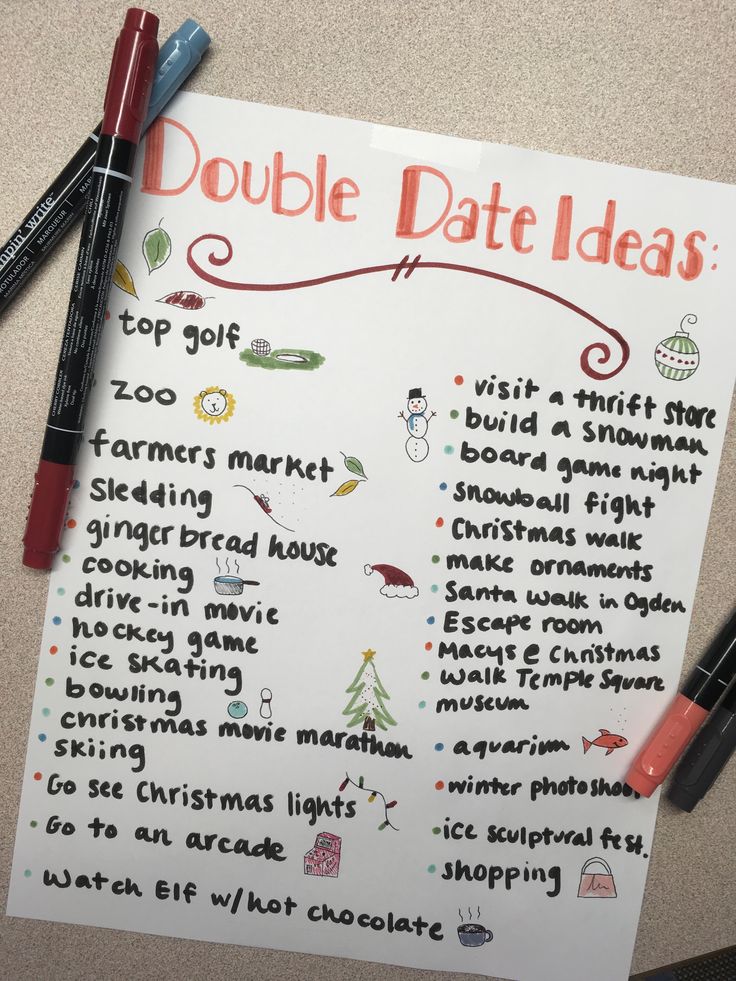 Double Date Ideas:
top golf
zoo
farmers market
Sledding
gingerbread house
cooking
drive-in movie
hockey game
ice skating
bowling
christmas movie marathon
skiing
Go see Christmas lights
Go to an arcade
Watch Elf w/hot chocolate
visit a thrift store
build a snowman
board game night
snowball fight
Christmas walk
make ornaments
Santa Walk in Ogden
Escape room
Macys @ Christmas
Walk Temple Square
museum
aquarium
winter photoshoot
ice sculptural fest.
shopping
pin' write
MARQUEUR